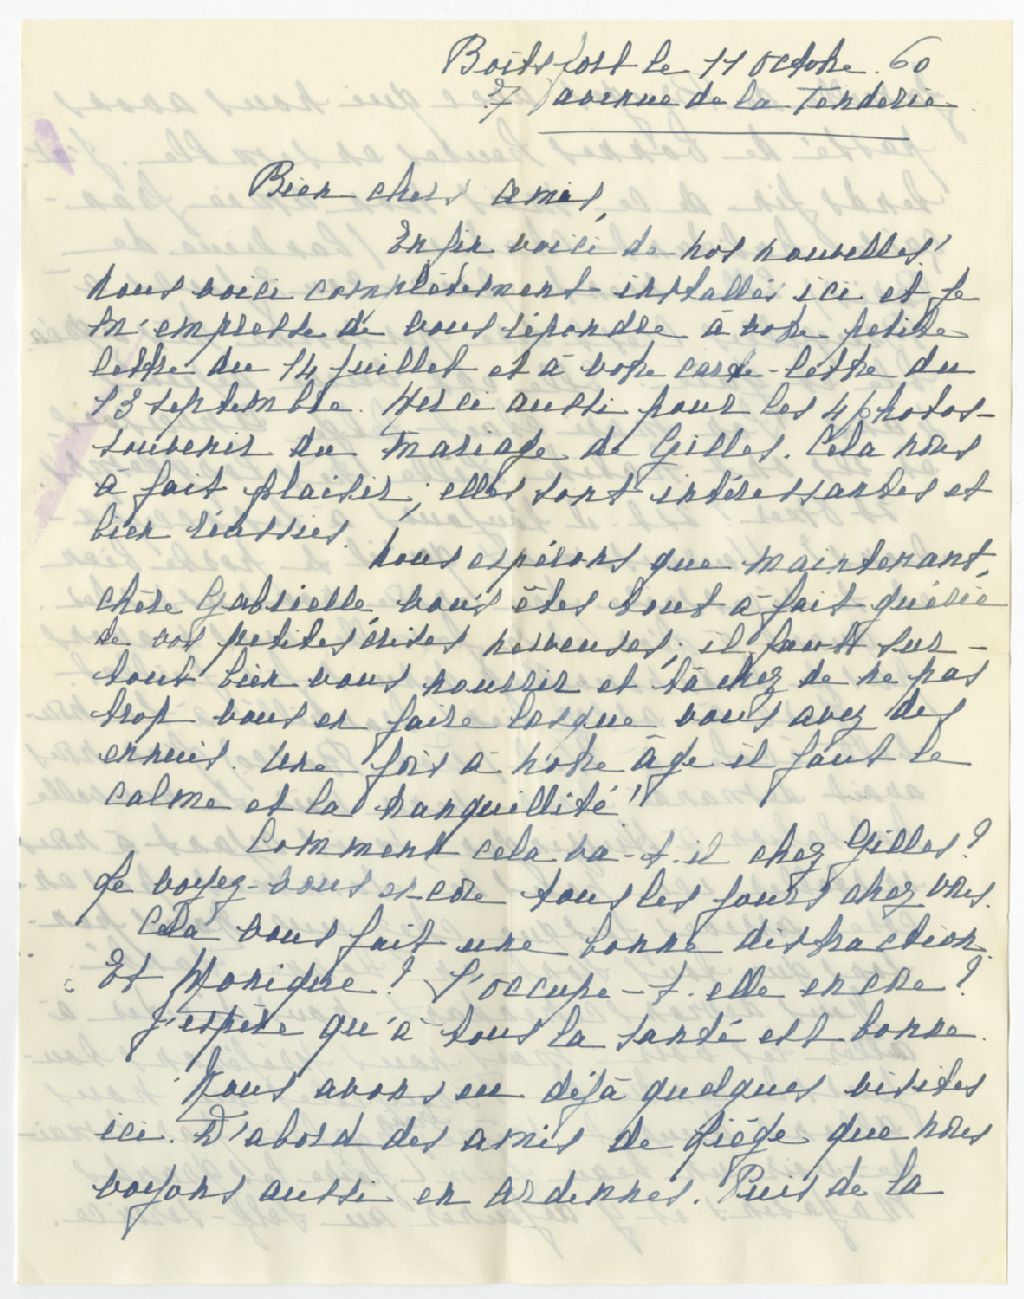 Boitsfort le 11 octobre 60
27 avenue de la Tenderie
Bien chers amis,
Enfin voici de nos nouvelles!
Nous voici complètement installés ici et je
m'empresse de vous répondre à votre petite
lettre du 14 juillet et à votre carte-lettre du
13 septembre. Merci aussi pour les 4 photos-
souvenir du mariage de Gilles. Cela nous
à fait plaisir, elles sont intéressantes et
bien réussies.
Nous espérons que maintenant,
chère Gabrielle vous êtes tout à fait guérie
de vos petites crises nerveuses; il faut sur-
tout bien vous nourrir et tâchez de ne pas
trop vous en faire lorsque vous avez des
ennuis. Une fois à notre âge il faut le
calme et la tranquillité!
Comment cela va-t-il chez Gilles?
Le voyez-vous encore tous les jours chez vous.
Cela vous fait une bonne distraction.
Et Monique? S'occupe-t-elle encore?
J'espère qu'à tous la santé est bonne.
Nous avons eu déjà quelques visites
ici. D'abord des amis de Liège que nous
voyons aussi en Ardennes. Puis de la